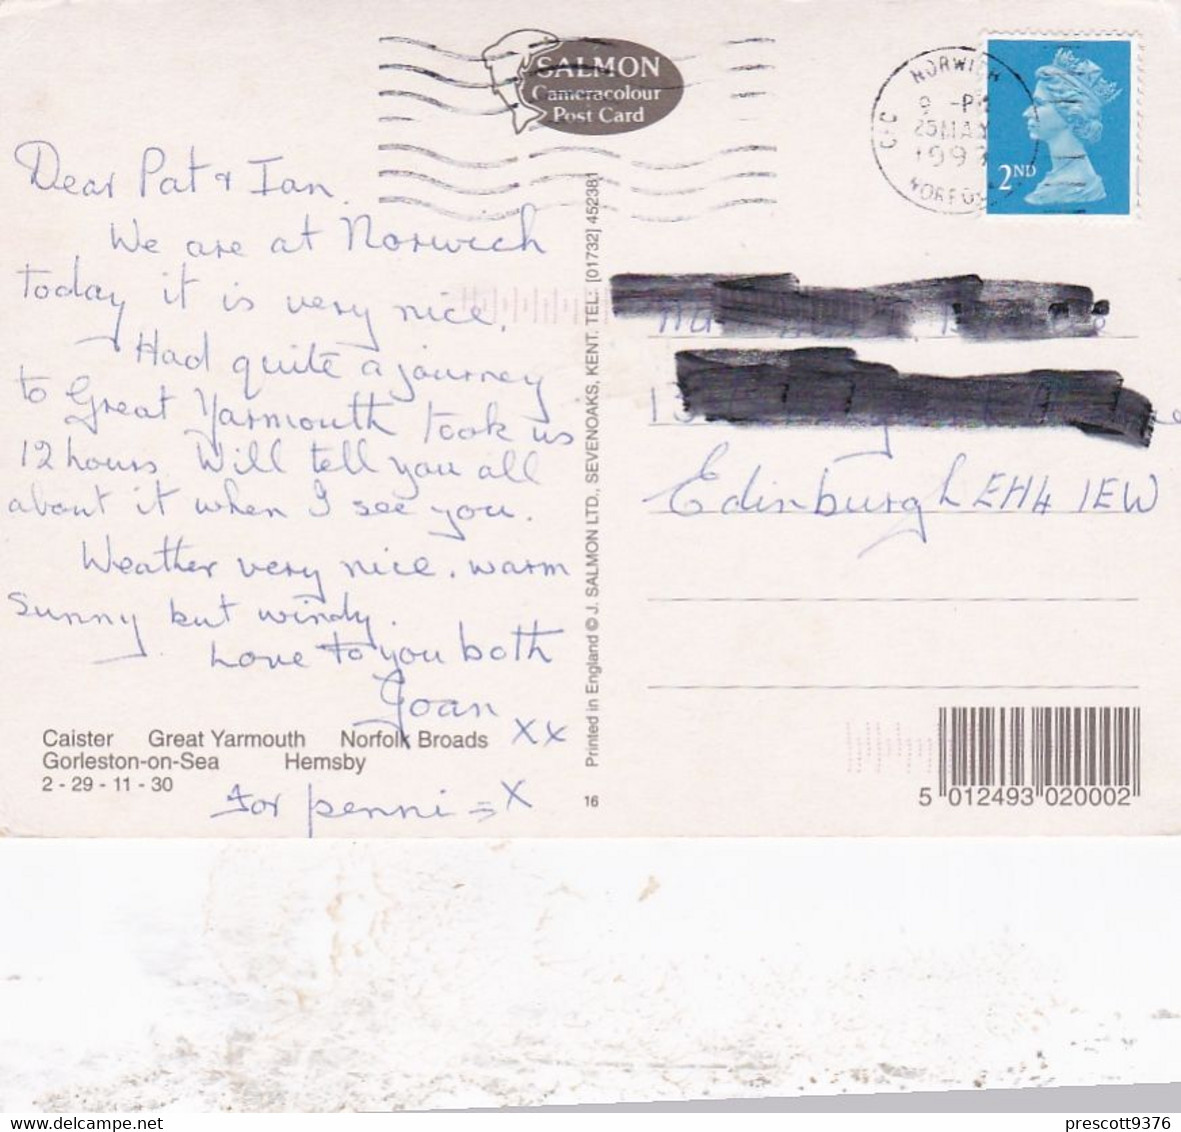 SALMON
Cameracolour
Post Card
NORWICH
9 -PM
25 MAY
199
NORFOLK
2ND
Dear Pat & Ian.
We are at Norwich
today it is very nice.
Had quite a journey
to Great Yarmouth took us
12 hours. Will tell you all
about it when I see you.
Weather very nice. warm
Sunny but windy.
Love to you both
Joan
xx
Caister Great Yarmouth Norfolk Broads
Gorleston-on-Sea Hemsby
2 - 29 - 11 - 30
for penni = X
Printed in England © J. SALMON LTD., SEVENOAKS, KENT. TEL: [01732] 452381
16
Edinburgh EH4 1EW
5 012493 020002
prescott9376